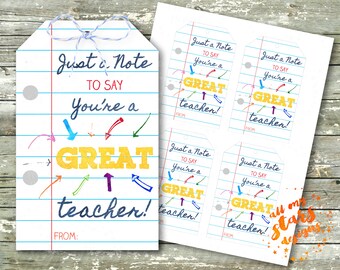 Just a Note
TO SAY
You're a
GREAT
teacher!
FROM:
Just a Note
TO SAY
You're a
GREAT
teacher!
FROM:
Just a Note
TO SAY
You're a
GREAT
teacher!
Just a Note
TO SAY
You're a
GREAT
teacher!
FROM:
Just a Note
TO SAY
You're a
GREAT
teacher!
all our
stars
designs